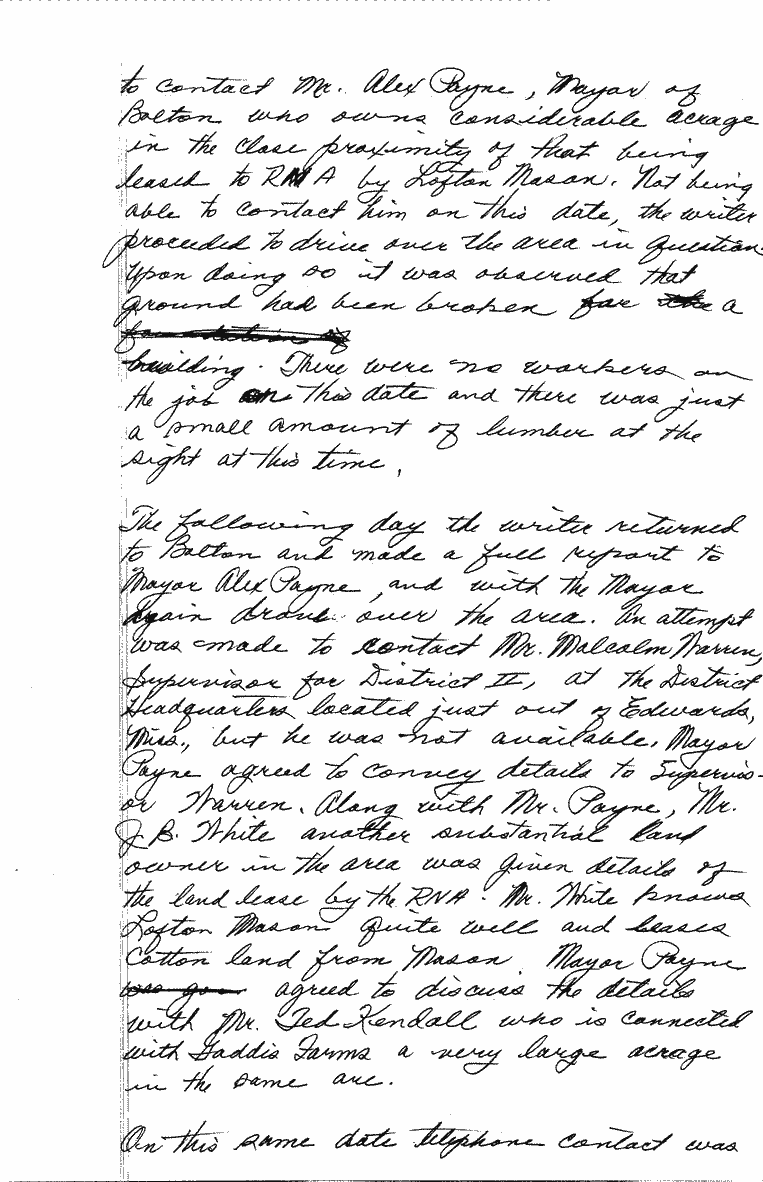 to contact Mr. Alex Payne, Mayor of
Bolton who owns considerable acrage
in the close proximity of that being
leased to RNA by Lofton Mason. Not being
able to contact him on this date, the writer
proceded to drive over the area in question.
Upon doing so it was observed that
ground had been broken for the a
foundation of
building. There were no workers on
the job on this date and there was just
a small amount of lumber at the
sight at this time.
The following day the writer returned
to Bolton and made a full report to
Mayor Alex Payne, and with the Mayor
again drove over the area. An attempt
was made to contact Mr. Malcolm Warren,
Supervisor for District II, at the District
Headquarters located just out of Edwards,
Miss., but he was not available. Mayor
Payne agreed to convey details to Supervis-
or Warren. Along with Mr. Payne, Mr.
J.B. White another substantial land
owner in the area was given details of
the land lease by the RNA. Mr. White knows
Lofton Mason quite well and leases
cotton land from Mason. Mayor Payne
was agreed to discuss the details
with Mr. Ted Kendall who is connected
with Gaddis Farms a very large acrage
in the same are.
On this same date telephone contact was